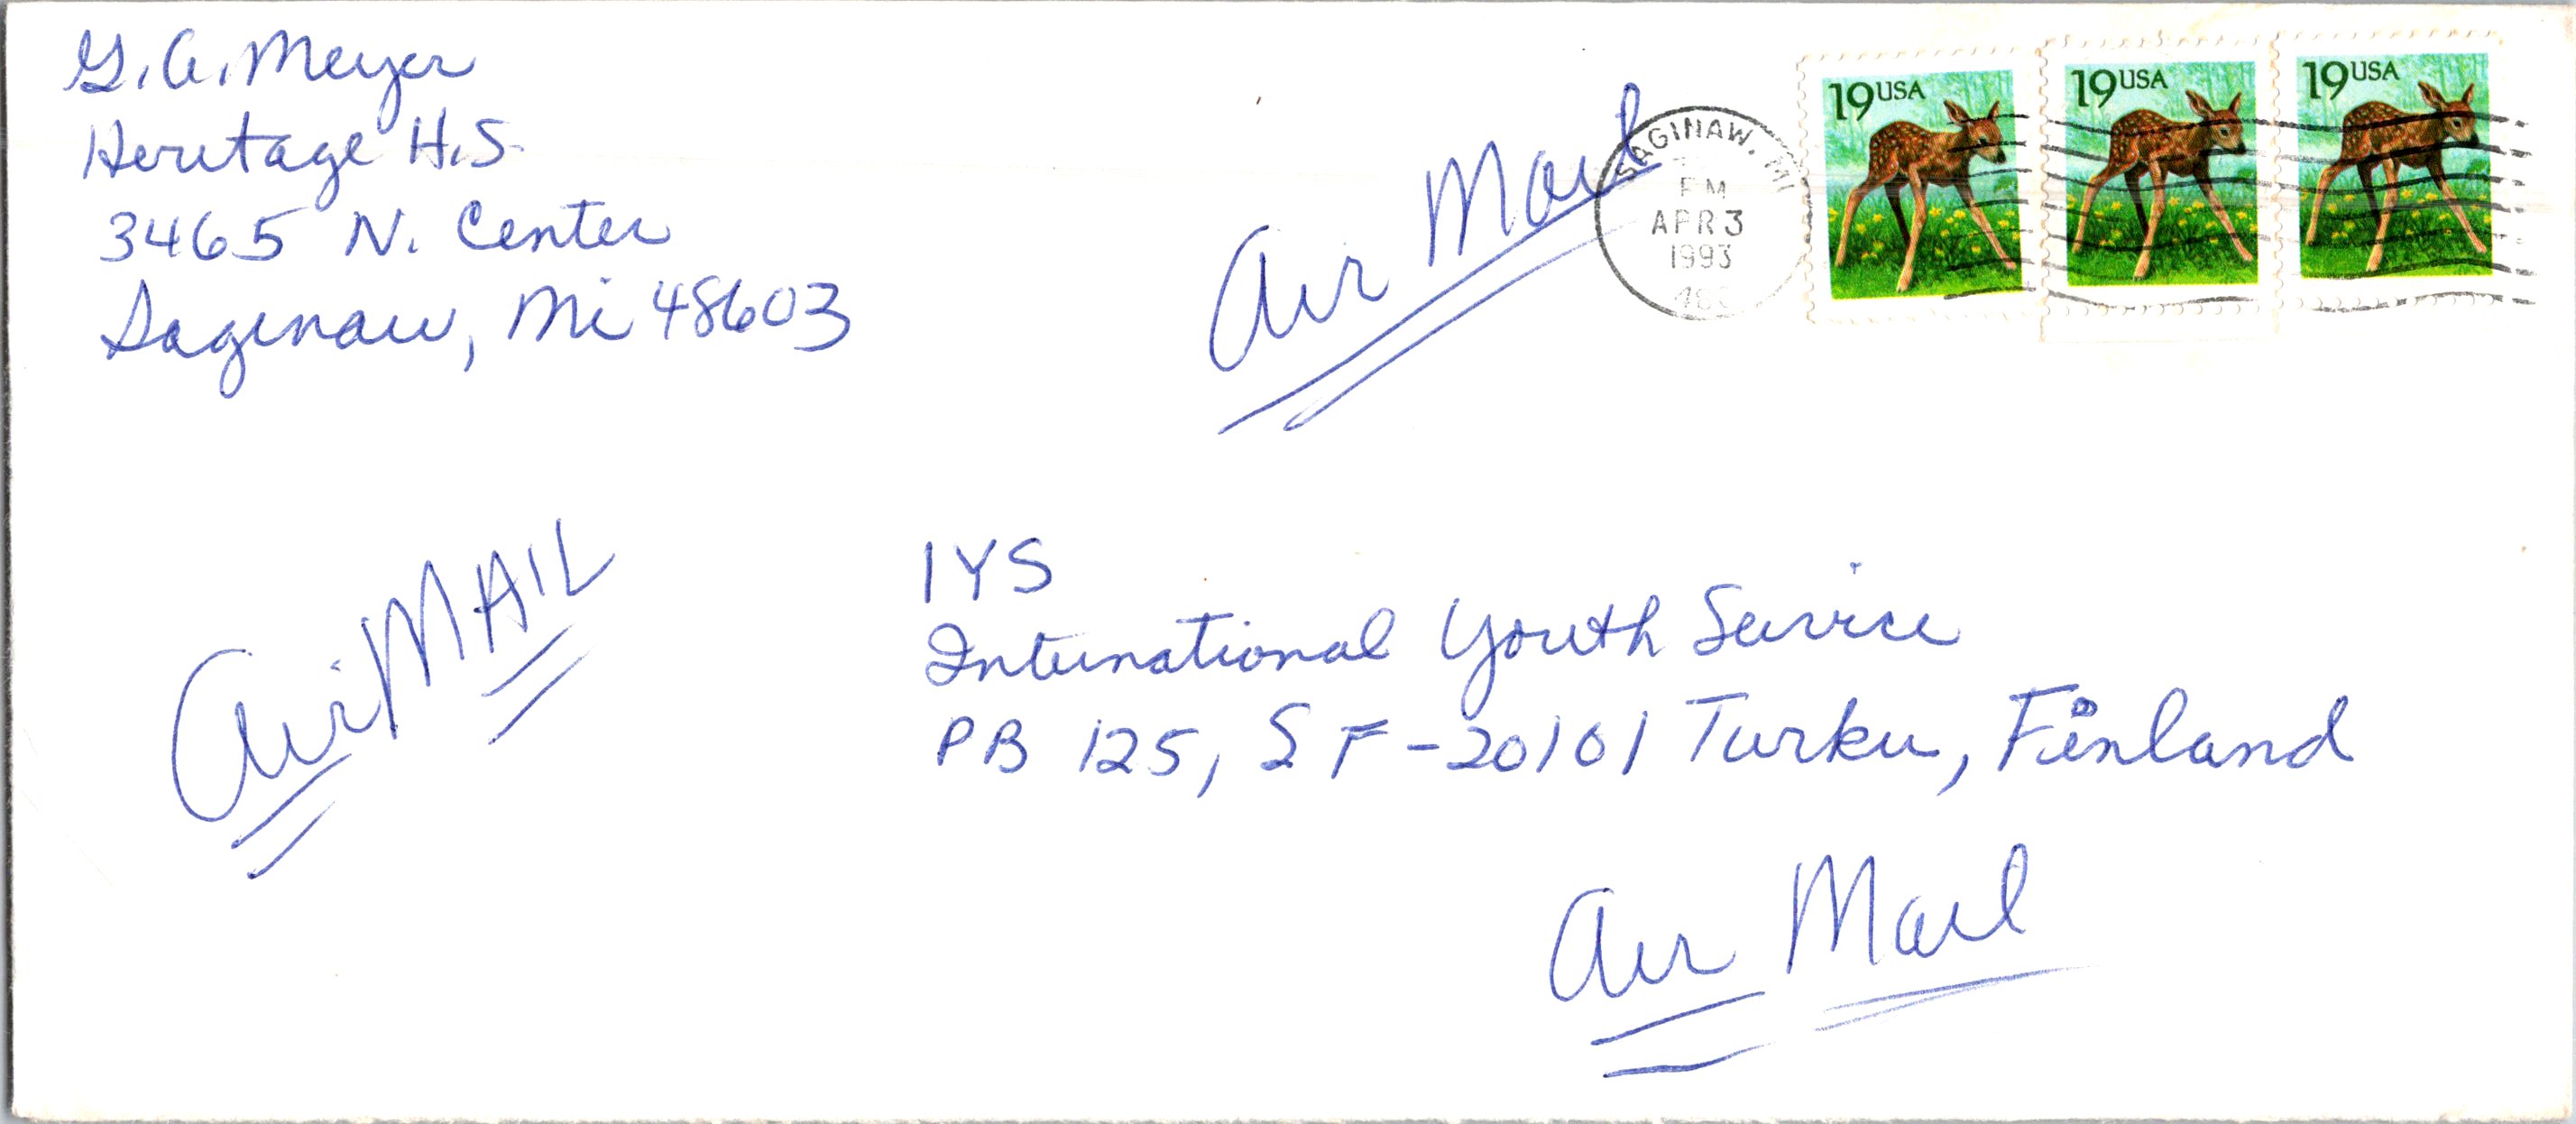 G. A. Meyer
Heritage H.S.
3465 N. Center
Saginaw, Mi 48603
Air Mail
SAGINAW, MI
PM
APR 3
1993
19 USA
19 USA
19 USA
Air MAIL
IYS
International Youth Service
PB 125, SF-20101 Turku, Finland
Air Mail